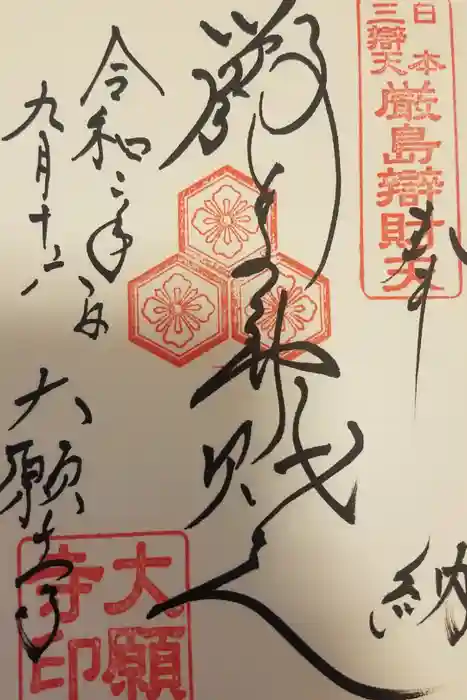 奉納
日本三辯天
厳島辯財天
厳島弁財天
令和二年
九月十六日
大願寺
大願寺印